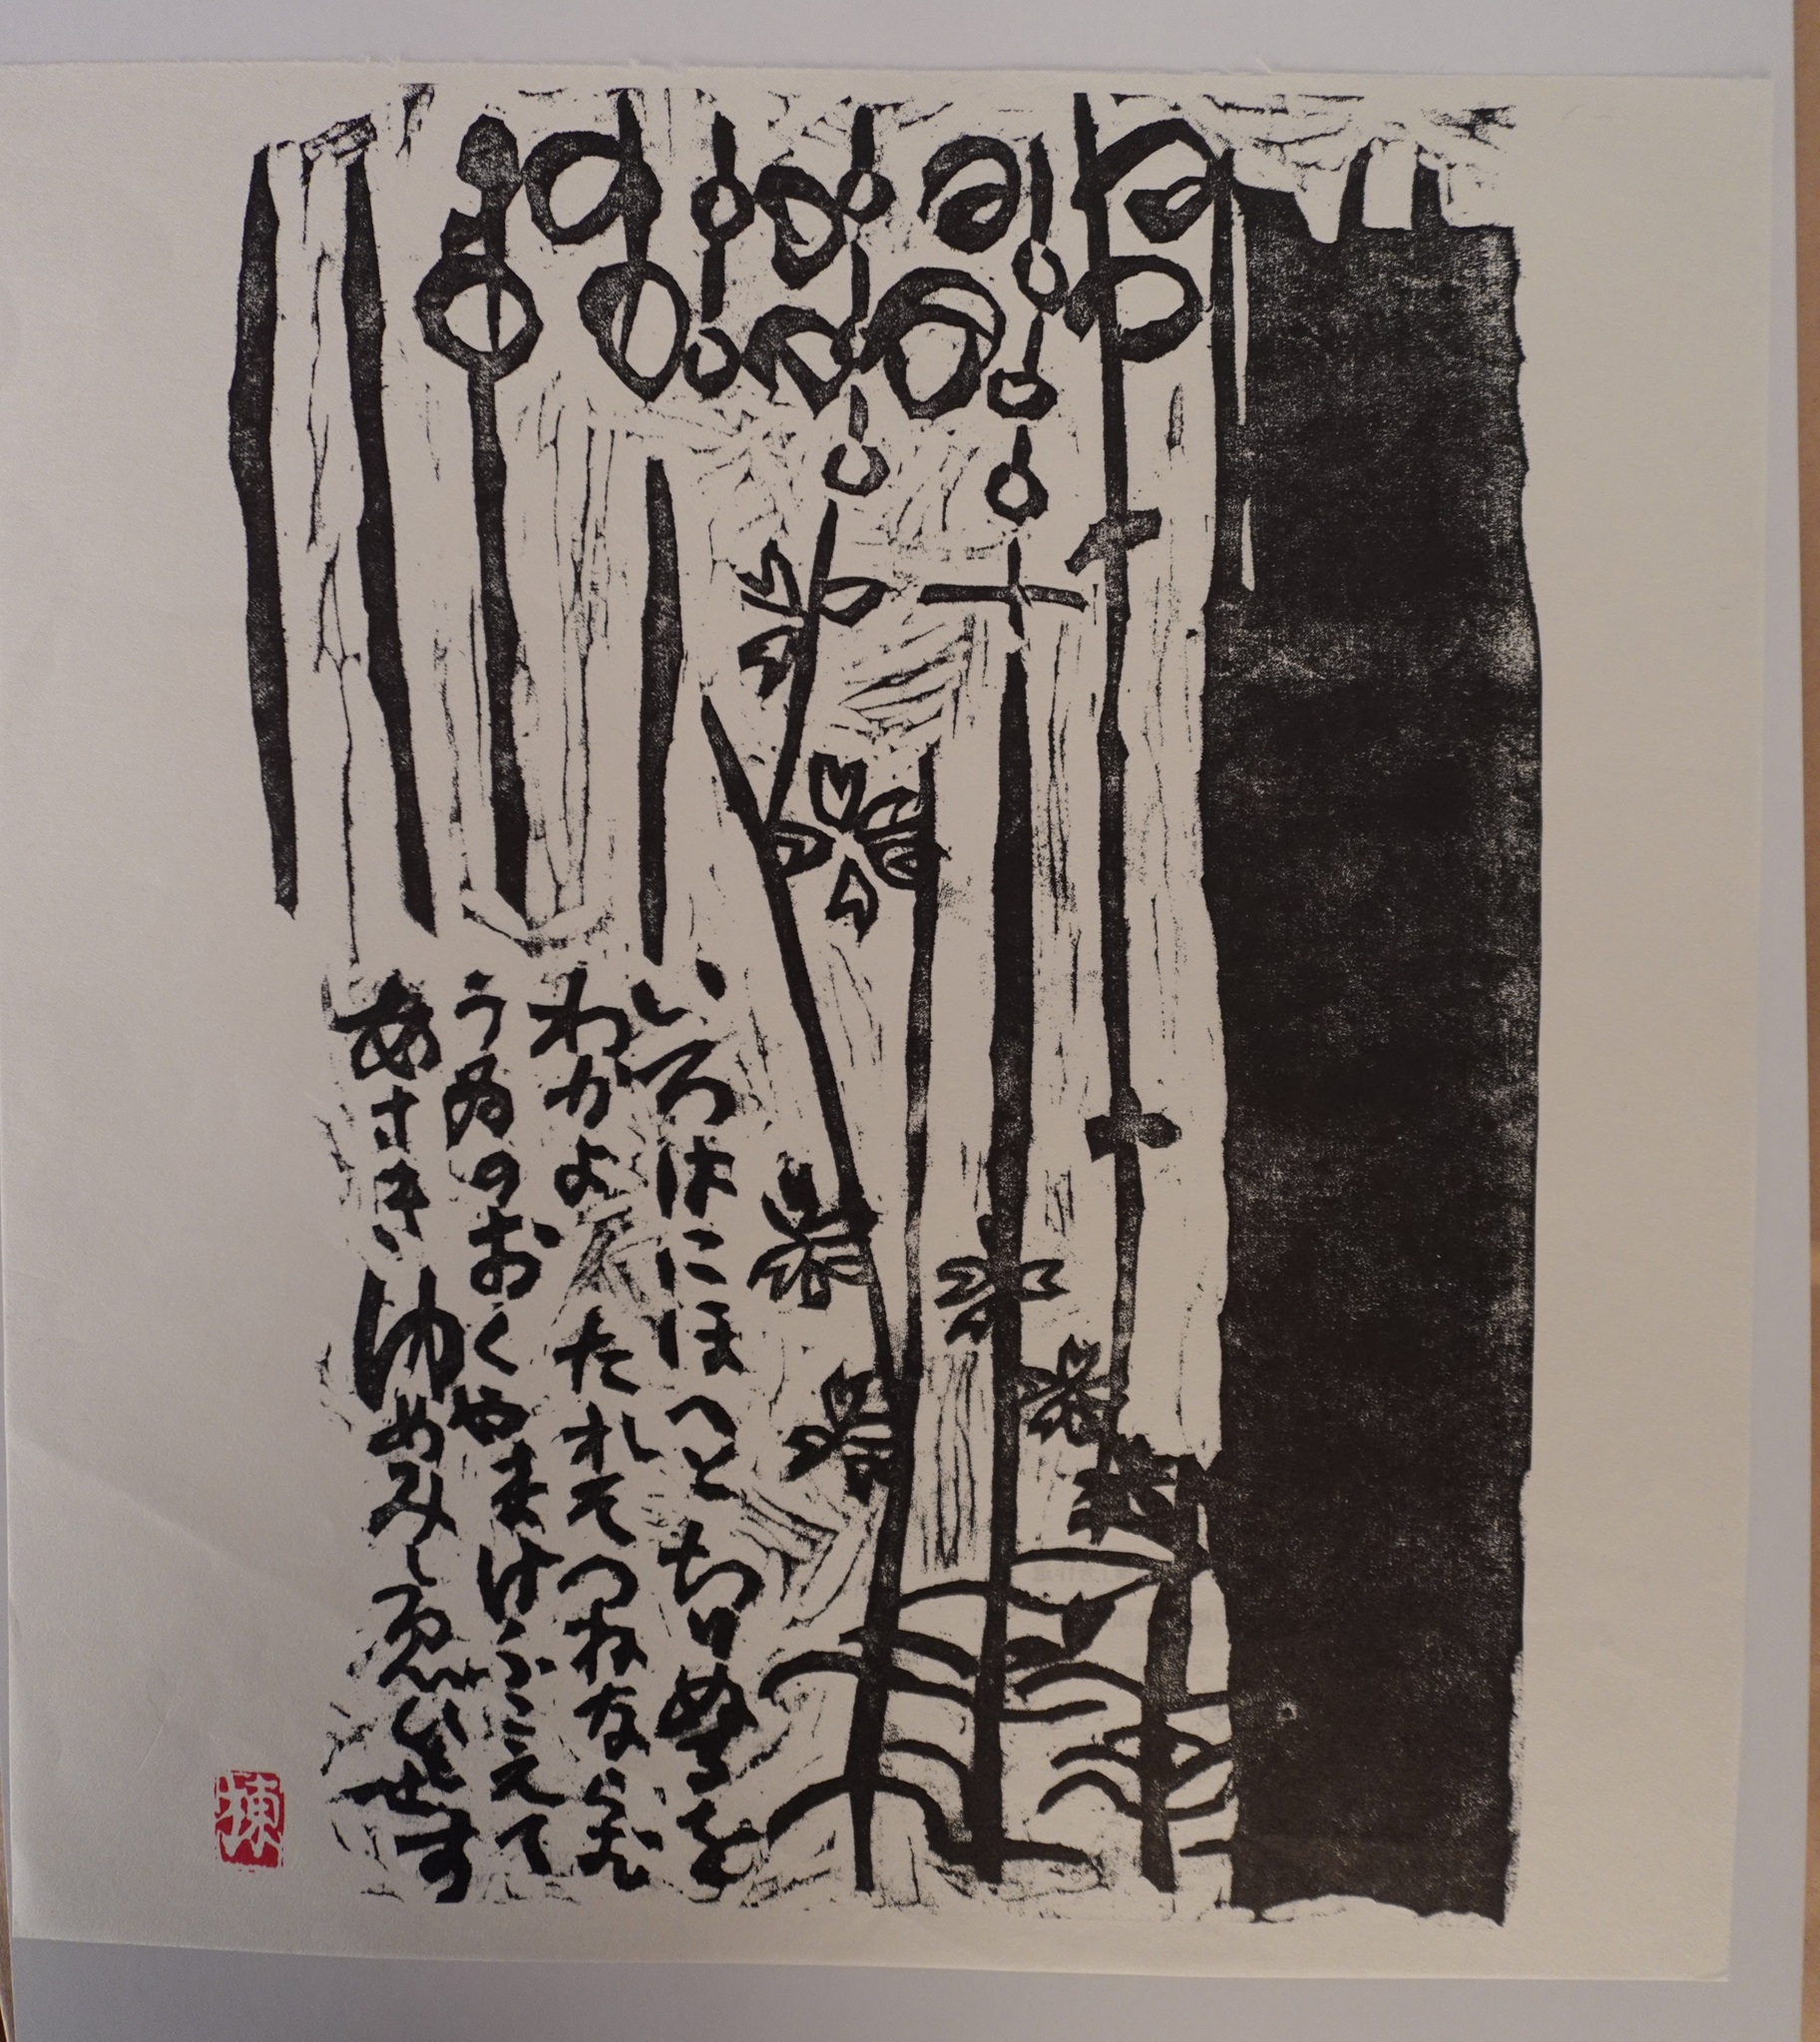 いろはにほへと ちりぬるを
わかよ たれそつねならむ
うゐのおくやまけふこえて
あさきゆめみしゑひもせす
棟